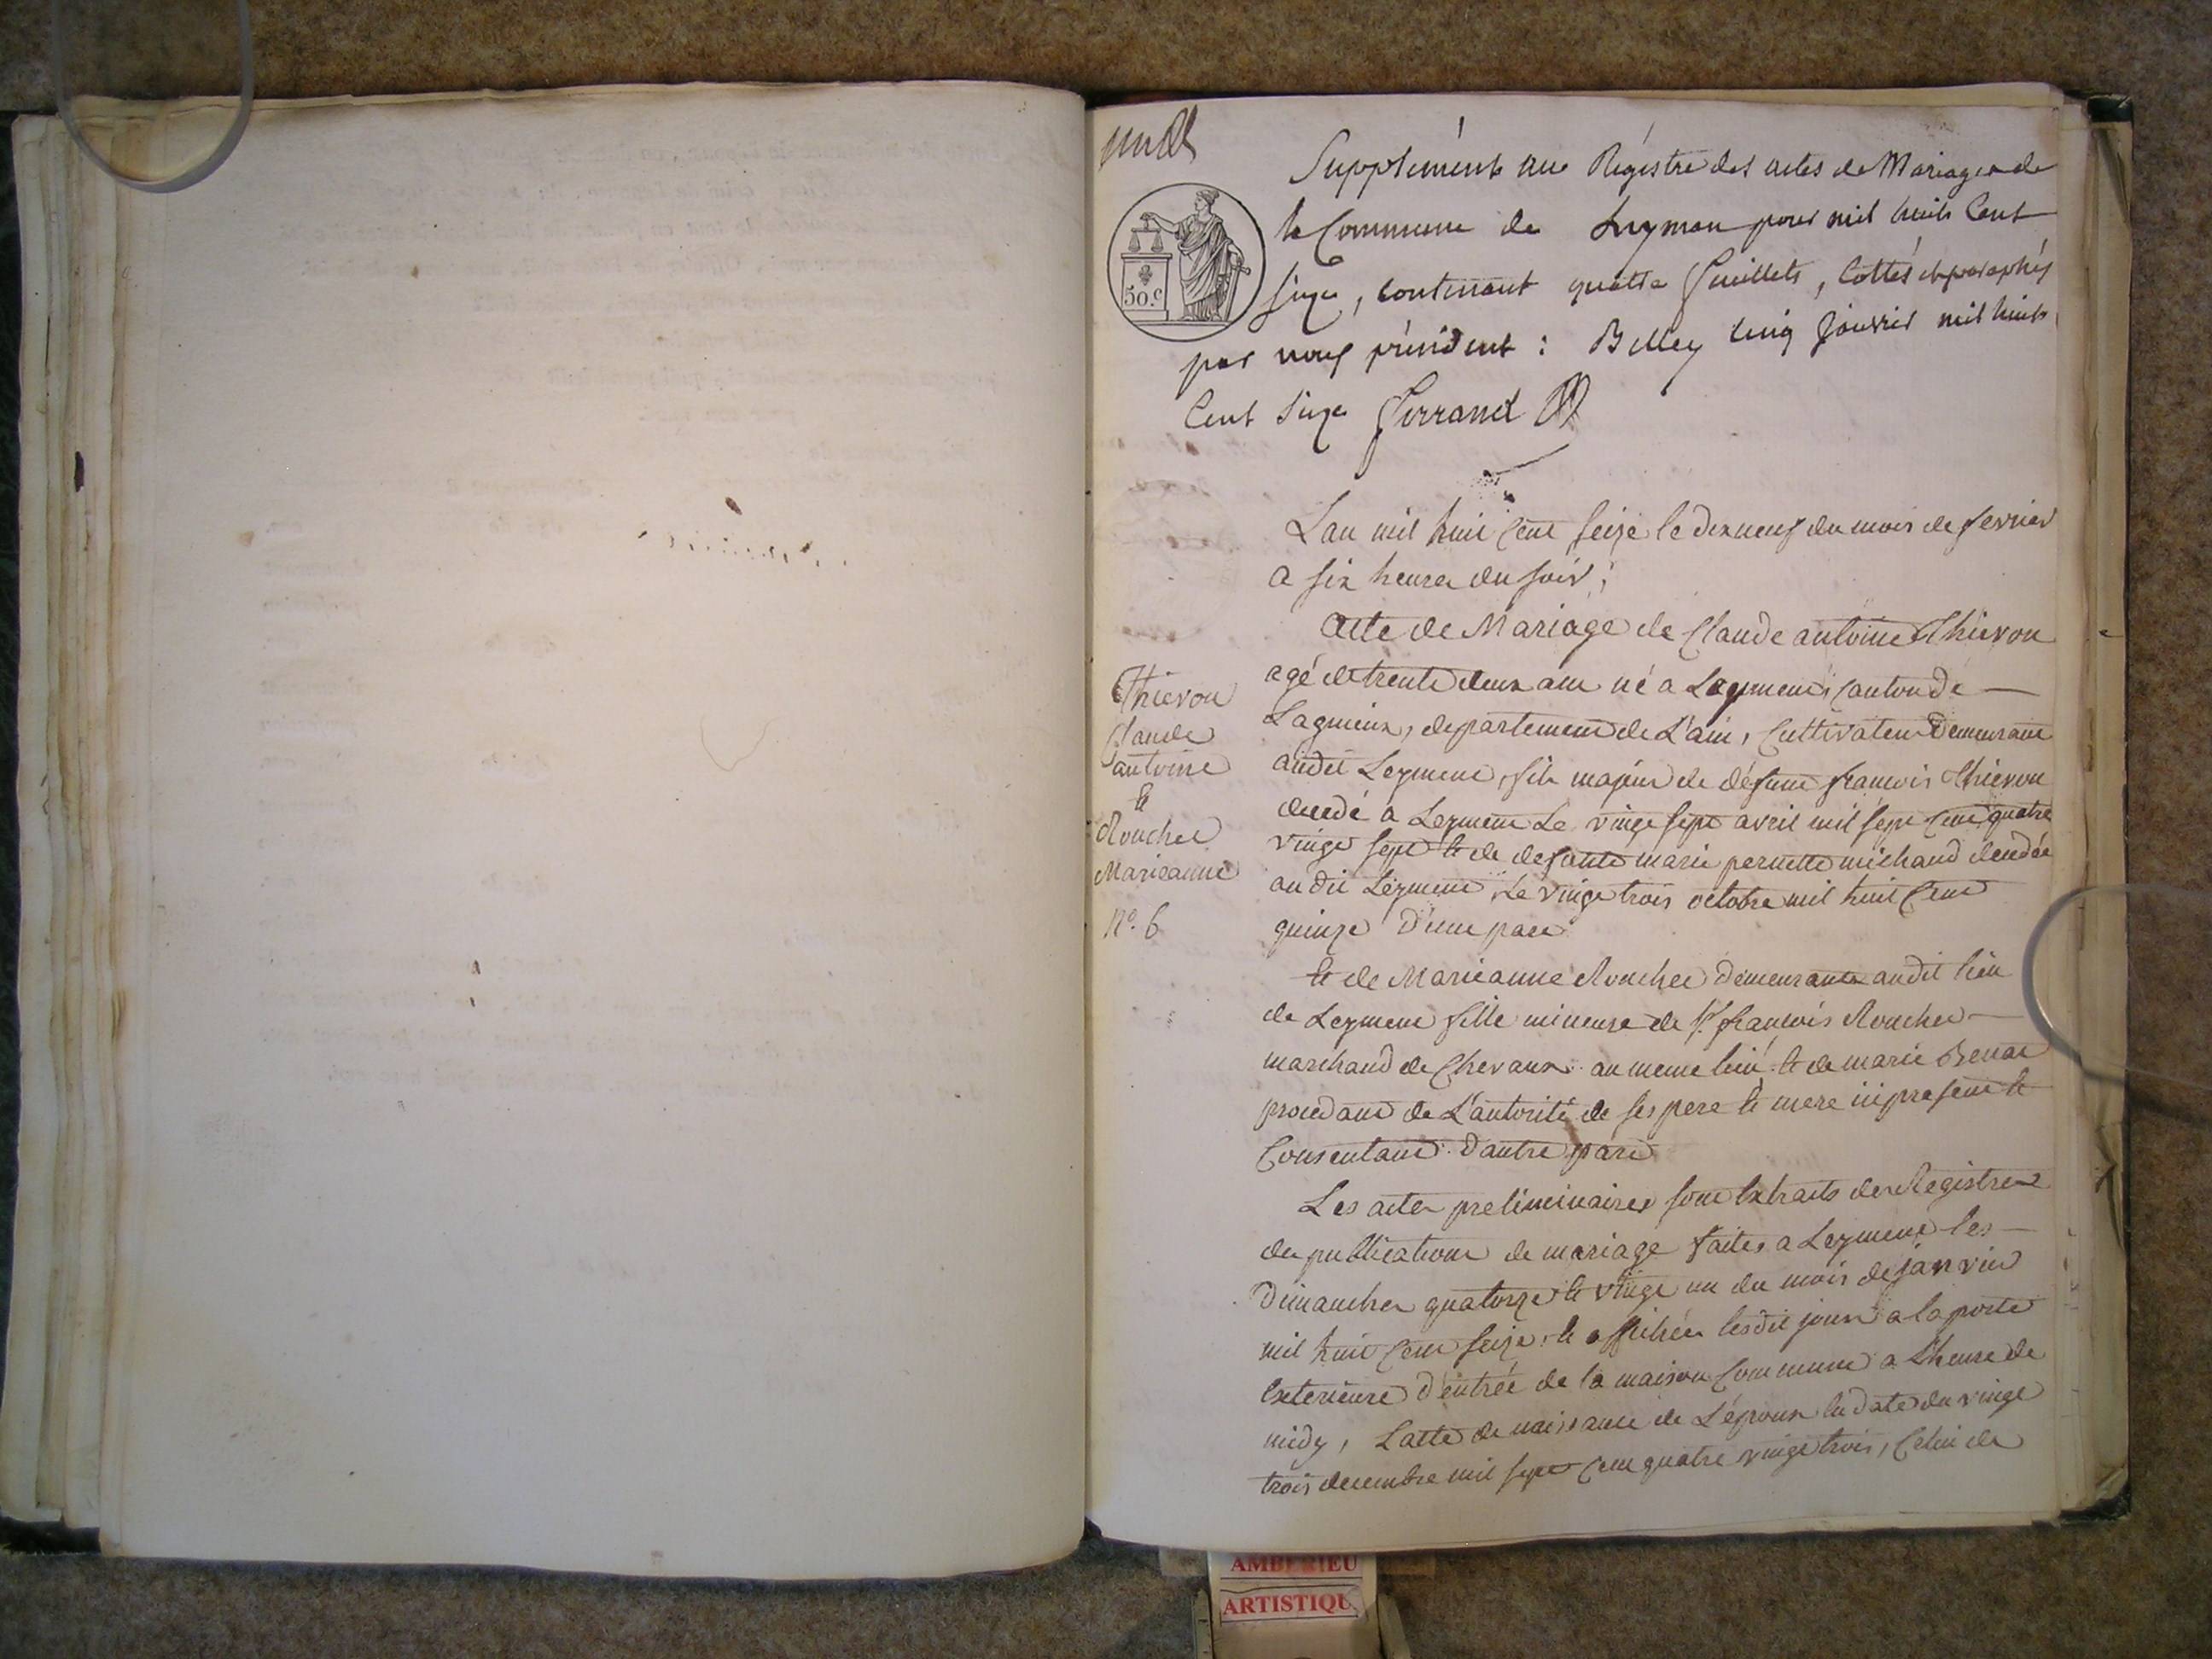 Supplément au Régistre des actes de Mariages de
la Commune de Leymen pour mil huit Cent
Seize, contenant quatre feuillets, Cottés et paraphés
par nous président : Belley Cinq Janvier mil huit
Cent Seize Ferrand
50.c
Lan mil huit Cent seize le dix neuf du mois de fevrier
a six heures du soir ;
acte de Mariage de Claude antoine Thievon
agé de trente deux ans né a Leyment canton de
Lagnieux, departement de L'ain, Cultivateur Demeurant
audit Leyment, fils majeur de défunt francois Thievon
decedé a Leyment Le vingt sept avril mil sept Cent quatre
vingt sept et de defunte marie pernette michaud decedée
audit Leyment, Le vingt trois octobre mil huit Cent
quinze D'une part
Et de Marieanne Rouchet demeurante audit lieu
de Leyment fille mineure de Sr francois Rouchet
marchand de Chevaux au meme lieu et de marie
procedant de L'autorité de ses pere et mere ici present et
Consentant D'autre part
Les actes preliminaires sont Extraits des Registres
des publications de mariage faites a Leyment les
Dimanches quatorze et vingt un du mois de janvier
mil huit Cent seize, et affichées lesdit jours a la porte
Exterieure D'entrée de la maison Commune a L'heure de
midy, Lacte de naissance de L'époux En date du vingt
trois decembre mil sept Cent quatre vingt trois, Celui de
Thievon
Claude
antoine
Et
Rouchet
Marieanne
N.o 6
AMBERIEU
ARTISTIQU